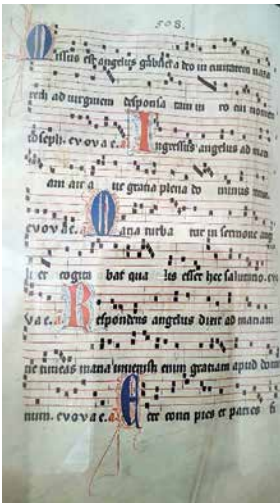 508.
Missus est angelus gabriel a deo in civitatem naza
reth ad virginem desponsa tam in ro cui nomen
ioseph. evovae. a Ingressus angelus ad mari
am ait a ue gratia plena do minus tecum
evovae. a Maria turba tur in sermone ang
li et cogita bat qua lis esset hec salutatio. evo
vae. a Respondens angelus dixit ad mariam
ne timeas maria invenisti enim gratiam apud domi
num. evovae. a Ecce conci pies et paries fi